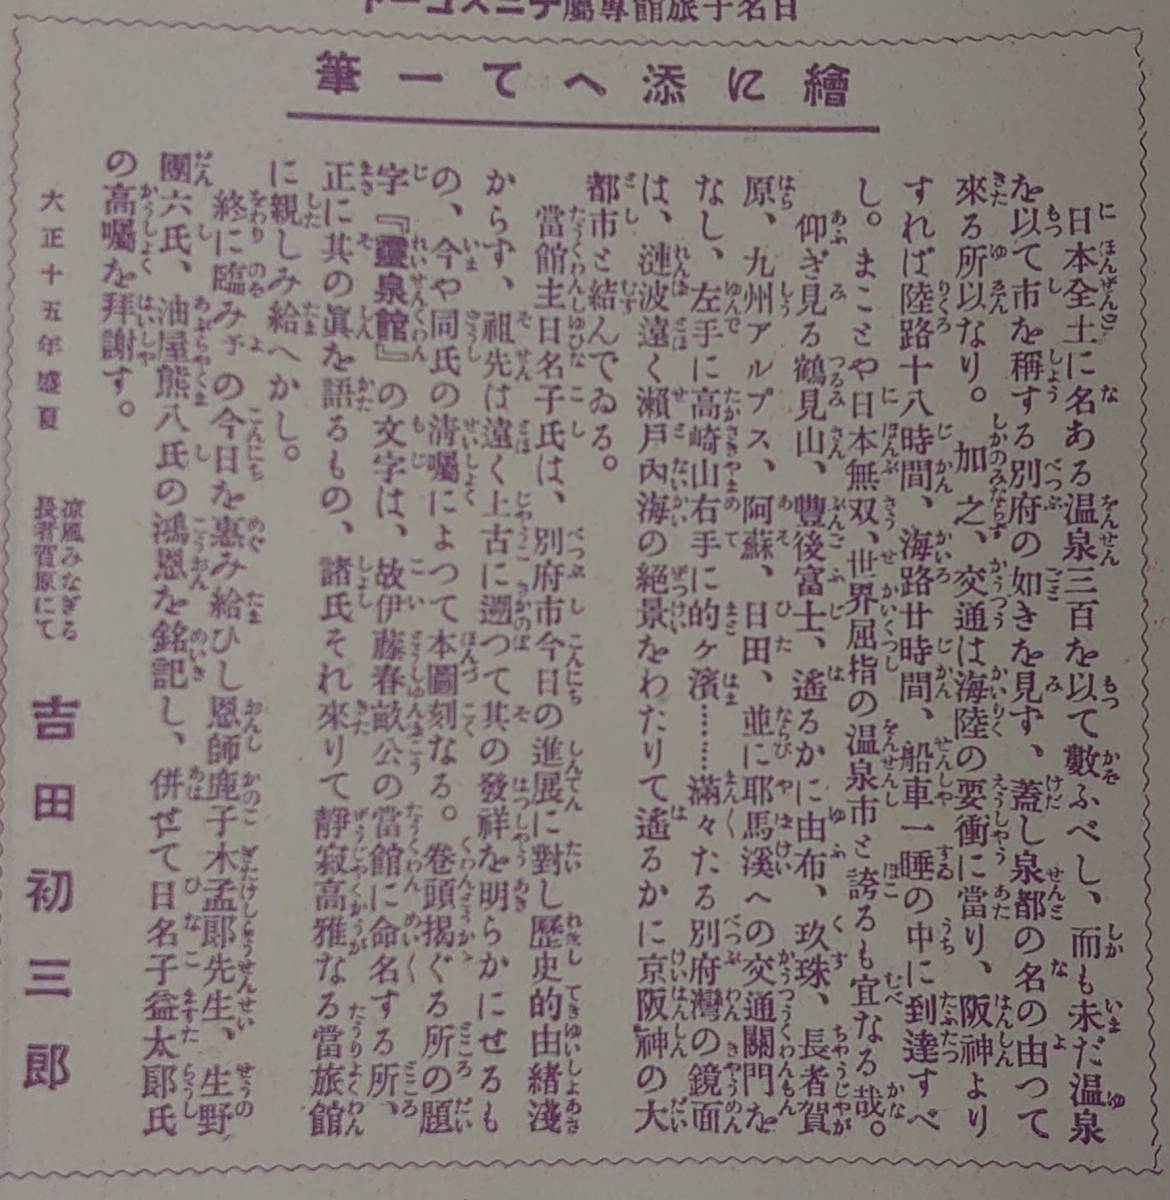 日名子旅館專屬テニスコート
繪に添へて一筆
日本全土に名ある温泉三百を以て數ふべし、而も未だ温泉
を以て市を稱する別府の如きを見ず、蓋し泉都の名の由つて
來る所以なり。　加之、交通は海陸の要衝に當り、阪神より
すれば陸路十八時間、海路廿時間、船車一睡の中に到達すべ
し。まことや日本無双、世界屈指の温泉市と誇るも宜なる哉。
仰ぎ見る鶴見山、豐後富士、遙るかに由布、玖珠、長者賀
原、九州アルプス、阿蘇、日田、並に耶馬溪への交通關門を
なし、左手に高崎山右手に的ケ濱………滿々たる別府灣の鏡面
は、漣波遠く瀬戸內海の絕景をわたりて遙るかに京阪神の大
都市と結んでゐる。
當館主日名子氏は、別府市今日の進展に對し歴史的由緒淺
からず、祖先は遠く上古に遡つて其の發祥を明らかにせるも
の、今や同氏の淸囑によつて本圖刻なる。卷頭揭ぐる所の題
字『靈泉館』の文字は、故伊藤春畝公の當館に命名する所、
正に其の眞を語るもの、諸氏それ來りて靜寂高雅なる當旅館
に親しみ給へかし。
終に臨み予の今日を惠み給ひし恩師鹿子木孟郎先生、生野
團六氏、油屋熊八氏の鴻恩を銘記し、併せて日名子益太郎氏
の高囑を拜謝す。
大正十五年盛夏
涼風みなぎる
長者賀原にて
吉田初三郎